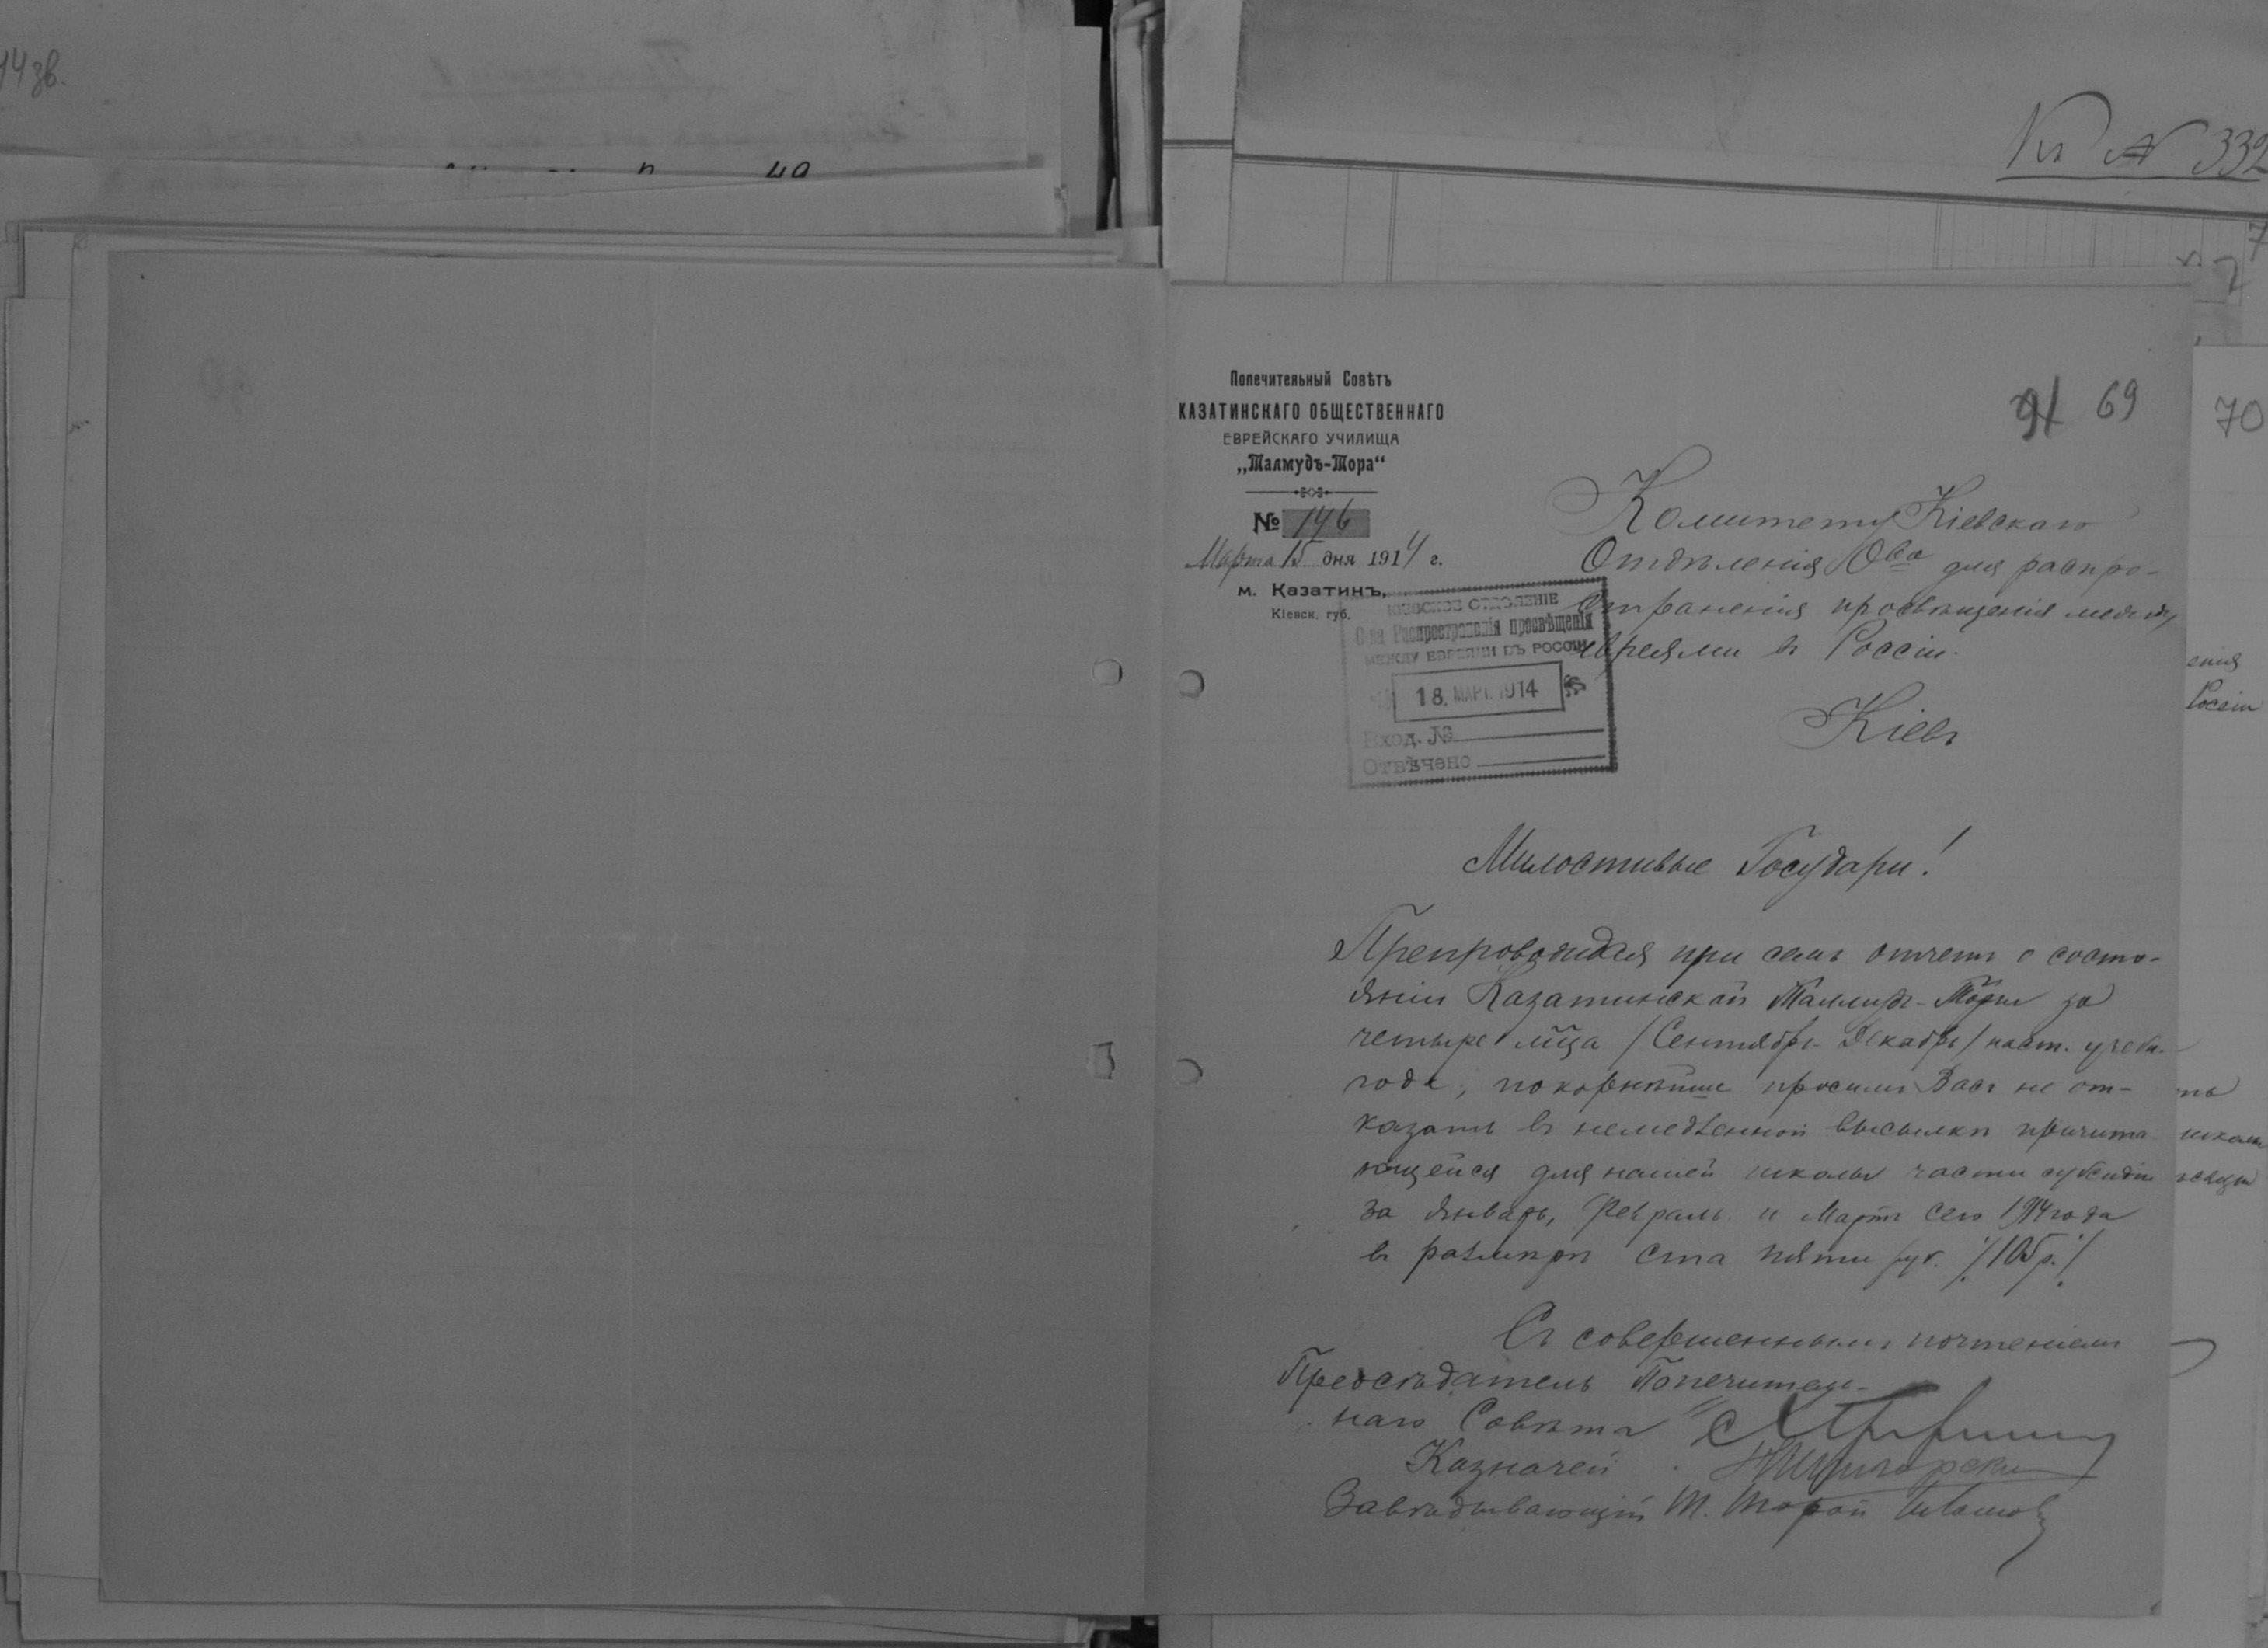 14 зв.
№ 332
70
91 69
Попечительный Совѣтъ
КАЗАТИНСКАГО ОБЩЕСТВЕННАГО
ЕВРЕЙСКАГО УЧИЛИЩА
„Талмудъ-Тора“
№ 146
Марта 15 дня 1914 г.
м. Казатинъ,
Кіевск. губ.
КІЕВСКОЕ ОТДѢЛЕНІЕ
О-ва Распространенія просвѣщенія
МЕЖДУ ЕВРЕЯМИ ВЪ РОССІИ
18. МАРТ. 1914
Вход. №
Отвѣчено
Комитету Кіевскаго
Отдѣленія О-ва для распро-
страненія просвѣщенія между
евреями въ Россіи.
Кіевъ
Милостивые Государи!
Препровождая при семъ отчетъ о состо-
яніи Казатинской Талмудъ-Торы за
четыре м-ца /Сентябрь-Декабрь/ наст. учебн.
года, покорнѣйше просимъ Васъ не от-
казать въ немедленной высылкѣ причита-
ющейся для нашей школы части субсидіи
за Январь, Февраль и Мартъ сего 1914 года
въ размѣрѣ ста пяти руб. /105 р./
Съ совершеннымъ почтеніемъ
Предсѣдатель Попечитель-
наго Совѣта
Казначей
Завѣдывающій Т. Торой